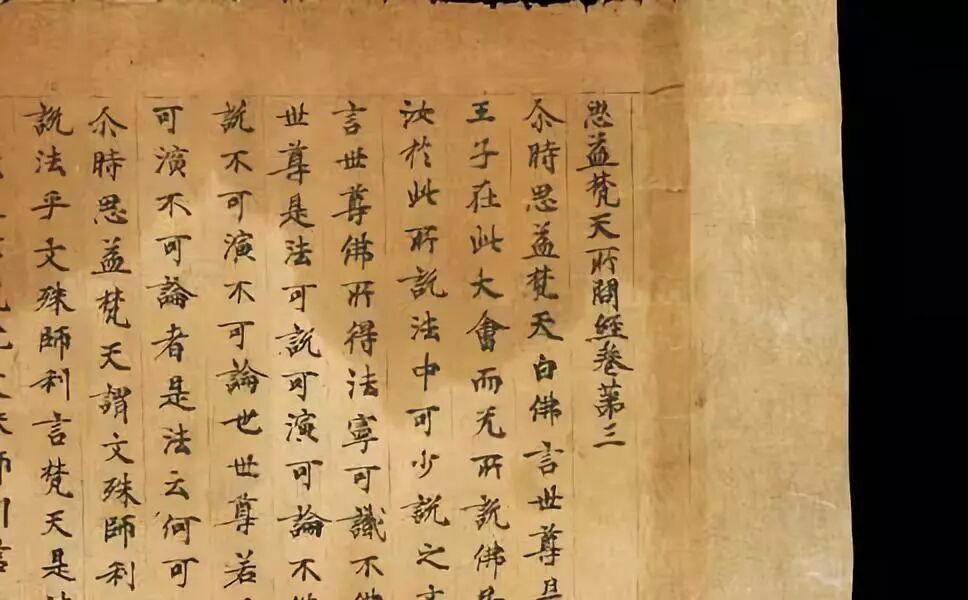 思益梵天所問經卷第三
尒時思益梵天白佛言世尊是
王子在此大會而无所說佛
汝於此所說法中可少說之文
言世尊佛所得法寧可識不佛
世尊是法可說可演可論不
說不可演不可論世世尊若
可演不可論者是法云何可
尒時思益梵天謂文殊師利
說法乎文殊師利言梵天是